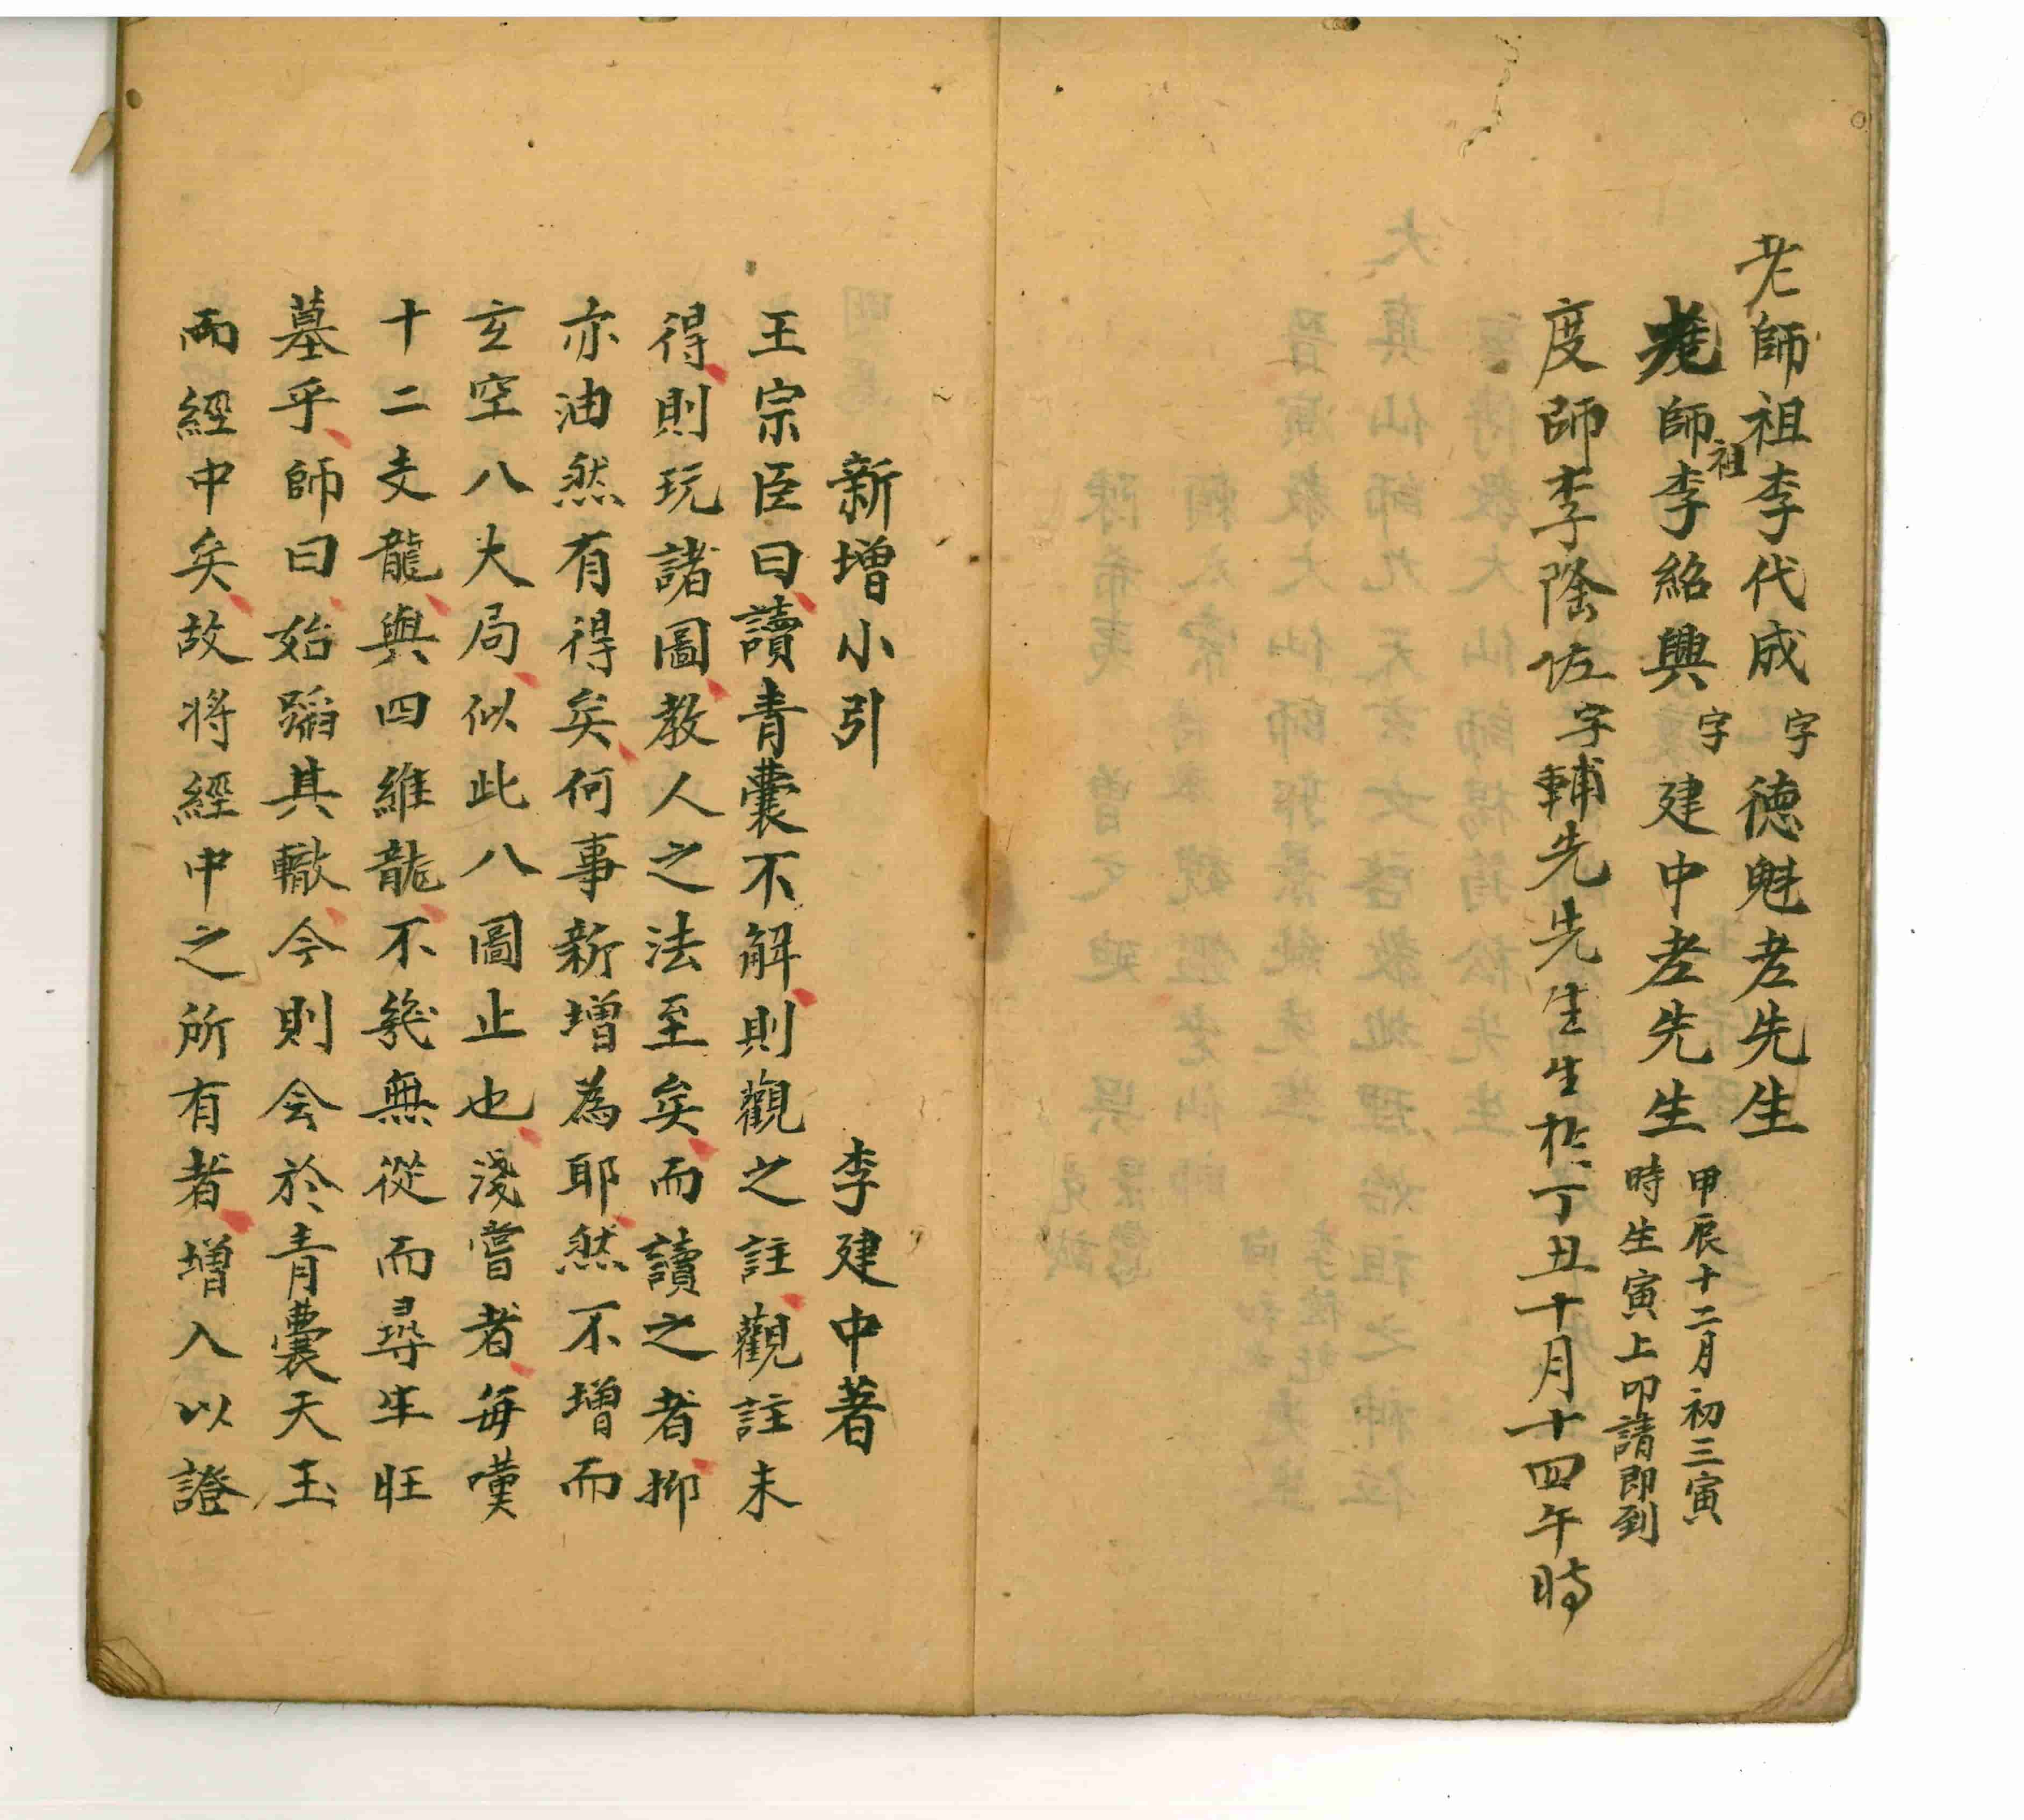 老師祖李代成字德魁老先生
師祖李紹興字建中老先生甲辰十二月初三寅
時生寅上叩請即到
度師李陰佐字輔先先生生於丁丑十月十四午時
新增小引 李建中著
王宗臣曰讀青囊不解則觀之註觀註未
得則玩諸圖教人之法至矣而讀之者抑
亦油然有得矣何事新增為耶然不增而
玄空八大局似此八圖止也淺嘗者每嘆
十二支龍與四維龍不幾無從而尋生旺
墓乎師曰始蹈其轍今則会於青囊天玉
而經中矣故將經中之所有者增入以證